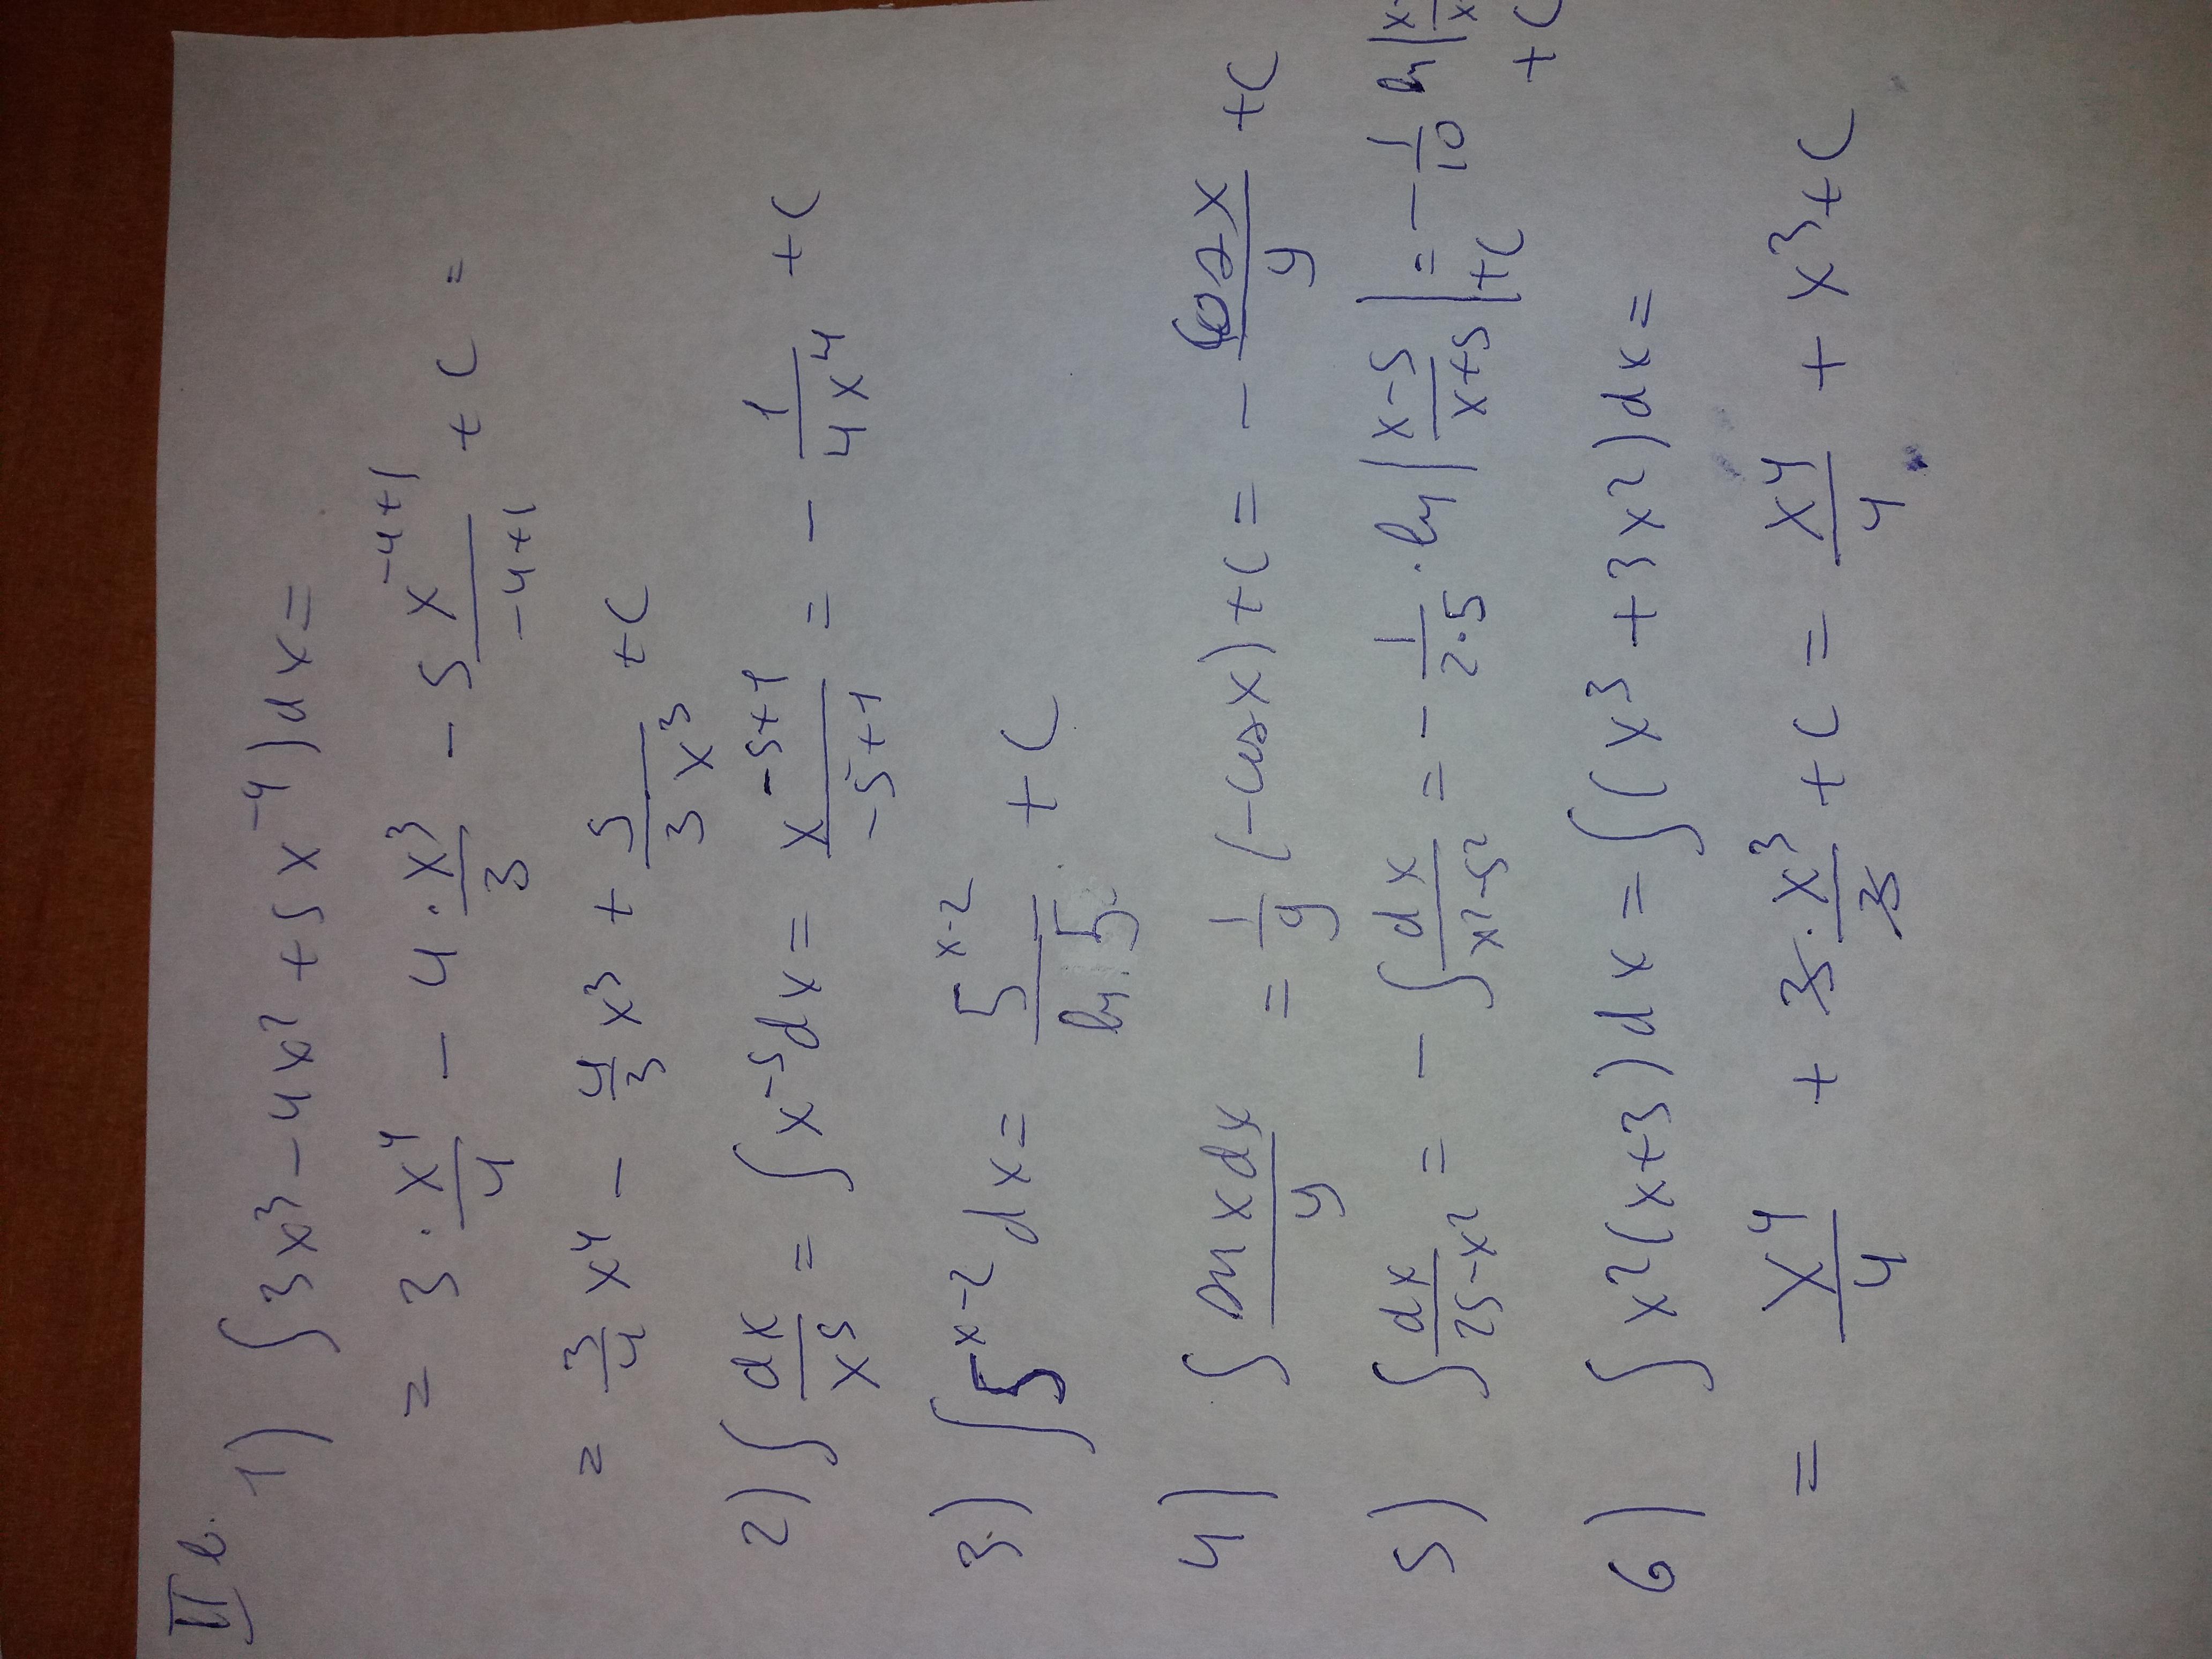 II в.
1) ∫ 3x³ - 4x² + 5x⁻⁴) dx =
= 3 · x⁴/4 - 4 · x³/3 - 5 x⁻⁴⁺¹/-4+1 + C =
= 3/4 x⁴ - 4/3 x³ + 5/3x³ + C
2) ∫ dx/x⁵ = ∫ x⁻⁵ dx = x⁻⁵⁺¹/-5+1 = - 1/4x⁴ + C
3) ∫ 5ˣ⁻² dx = 5ˣ⁻²/ln.5 + C
4) ∫ sin x dx/9 = 1/9 (-cos x) + C = - cos x/9 + C
5) ∫ dx/25-x² = - ∫ dx/x²-5² = - 1/2·5 · ln |x-5/x+5| + C = - 1/10 ln |x-/x + C
6) ∫ x²(x+3) dx = ∫ (x³ + 3x²) dx =
= x⁴/4 + 3 · x³/3 + C = x⁴/4 + x³ + C